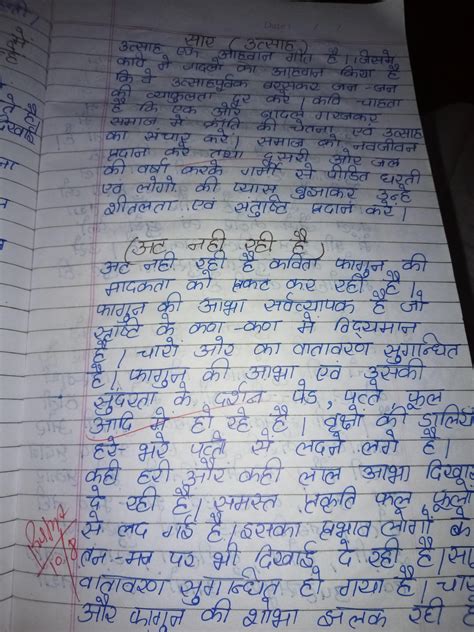 सार (उत्साह)
उत्साह एक आहवान गीत है। जिसमे
कवि ने बादलो का आहवान किया है
कि वे उत्साहपूर्वक बरसकर जन-जन
की व्याकुलता दूर करे। कवि चाहता
है कि एक ओर बादल गरजकर
समाज मे क्रांति की चेतना एवं उत्साह
का संचार करे। समाज को नवजीवन
प्रदान करे तथा दूसरी ओर जल
की वर्षा करके गर्मी से पीडित धरती
एवं लोगो की प्यास बुझाकर उन्हे
शीतलता एवं संतुष्टि प्रदान करे।
(अट नही रही है)
अट नही रही है कविता फागुन की
मादकता को प्रकट कर रही है।
फागुन की आभा सर्वव्यापक है जो
सृष्टि के कण-कण मे विद्यमान
है। चारो ओर का वातावरण सुगन्धित
है। फागुन की आभा एवं उसकी
सुंदरता के दर्शन पेड, पत्ते, फूल
आदि मे हो रहे है। वृक्षों की डालिय
हरे-भरे पत्तो से लदने लगे है।
कही हरी और कही लाल आभा दिखाई
दे रही है। समस्त प्रकृति फल फूलो
से लद गई है। इसका प्रभाव लोगो के
तन-मन पर भी दिखाई दे रही है। सा
वातावरण सुगन्धित हो गया है। चार
और फागुन की शोभा झलक रही है
10/8